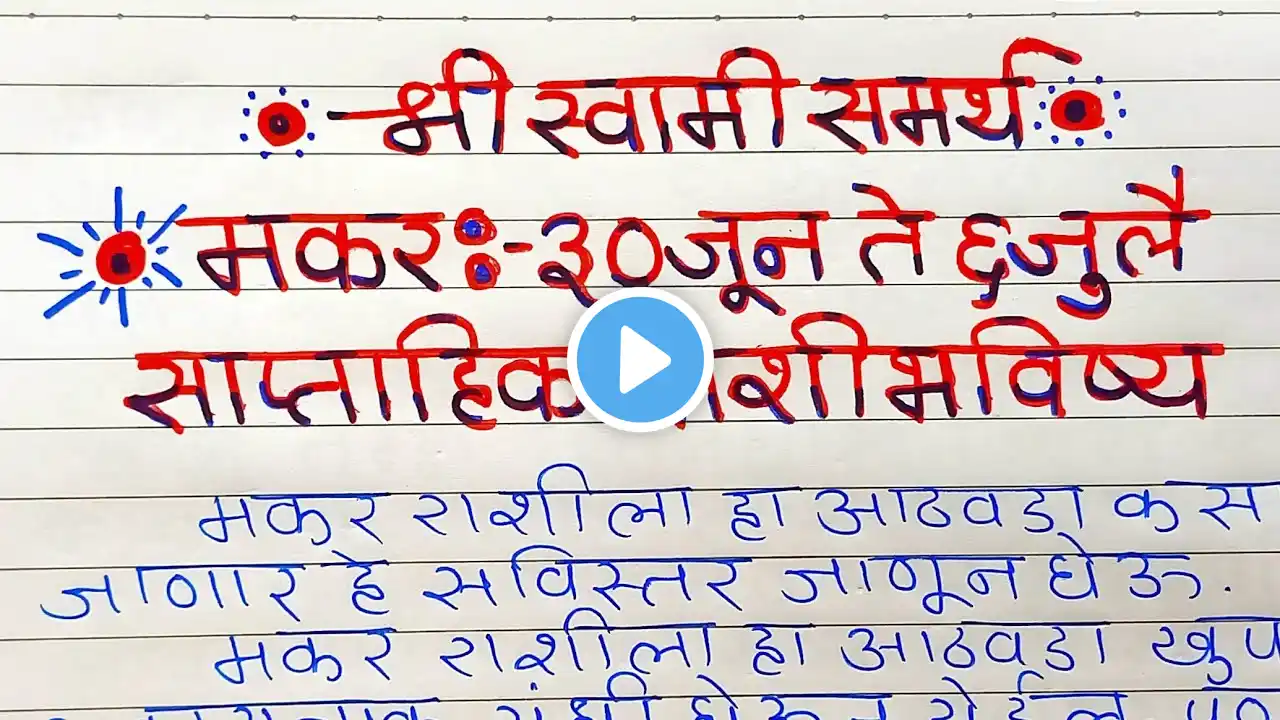 श्री स्वामी समर्थ
मकर :- ३० जून ते ६ जुलै
साप्ताहिक राशीभविष्य
मकर राशीला हा आठवडा कस
जाणार हे सविस्तर जाणून घेऊ.
मकर राशीला हा आठवडा खुप
संधी घेऊन येईल